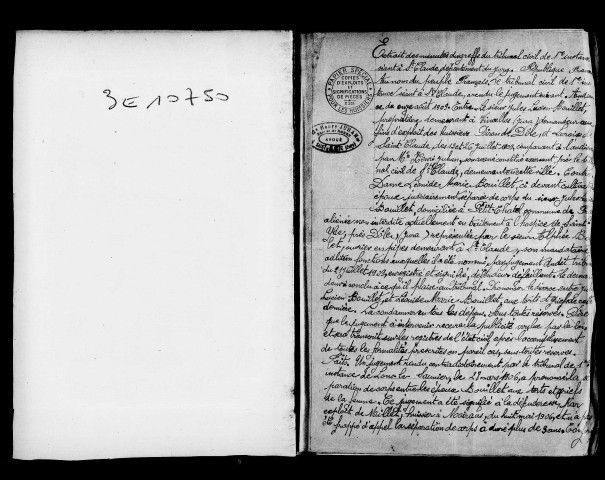 3E10750
PAPIER SPÉCIAL
COPIES
D'EXPLOITS
SIGNIFICATIONS
DE PIÈCES
POUR LES HUISSIERS
AVOUÉ
Extrait des minutes du greffe du tribunal civil de 1re instance
séant à St Claude, département du Jura. République Fran
au nom du peuple Français, le tribunal civil de 1re ins
tance séant à St Claude, a rendu le jugement suivant. Audien
ce de onze août 1909. Entre le sieur Jules Lucien Bouillet,
propriétaire, demeurant à Viralles (Jura) demandeur aux
fins d'exploit des huissiers Girond, Dôle et Lorain de
Saint Claude, des 15 et 26 juillet 1909, comparant à l'audience
par Me Henri Juhan, son avoué constitué exerçant près le tribu
nal civil de St Claude, demeurant en cette ville. Contre
Dame Léonide Marie Bouillet, ci devant cultiva
épouse judiciairement séparée de corps du sieur Jules
Bouillet, domiciliée à Petit Chatel commune de
aliénée non interdite actuellement en traitement à l'hospice de Saint
Ylie, près Dôle (Jura) représentée par le sieur Bouil
let, ouvrier en pipes demeurant à St Claude, son mandataire
ad litem fonctions auxquelles il a été nommé, par jugement dudit tribunal
du 8 juillet 1909, enregistré et signifié, défendeur défaillant. Le deman
deur a conclu à ce qu'il plaise au tribunal. Prononcer le divorce entre Jules
Lucien Bouillet, et Léonide Marie Bouillet, aux torts et griefs de cette
dernière. La condamner en tous les dépens. Sous toutes réserves. Dire
que le jugement à intervenir recevra la publicité voulue par la loi
et sera transcrit sur les registres de l'état civil après l'accomplissement
de toutes les formalités prescrites en pareil cas, sous toutes réserves.
Faits. Un jugement rendu contradictoirement par le tribunal de 1re
instance de Lons le Saunier, le 27 mars 1906, a prononcé la sé
paration de corps entre les époux Bouillet aux torts et griefs
de la femme. Ce jugement a été signifié à la défenderesse par
exploit de Millet, huissier à Moirans, du huit mai 1906, et n'a pas
été frappé d'appel la séparation de corps a duré plus de 3 ans.